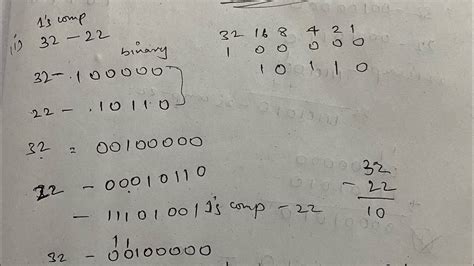 1's comp
i) 32 - 22
binary
32 - 100000
22 - 10110
32 16 8 4 2 1
1 0 0 0 0 0
1 0 1 1 0
32 = 00100000
22 - 00010110
- 11101001 1's comp - 22
32
- 22
10
11
32 - 00100000